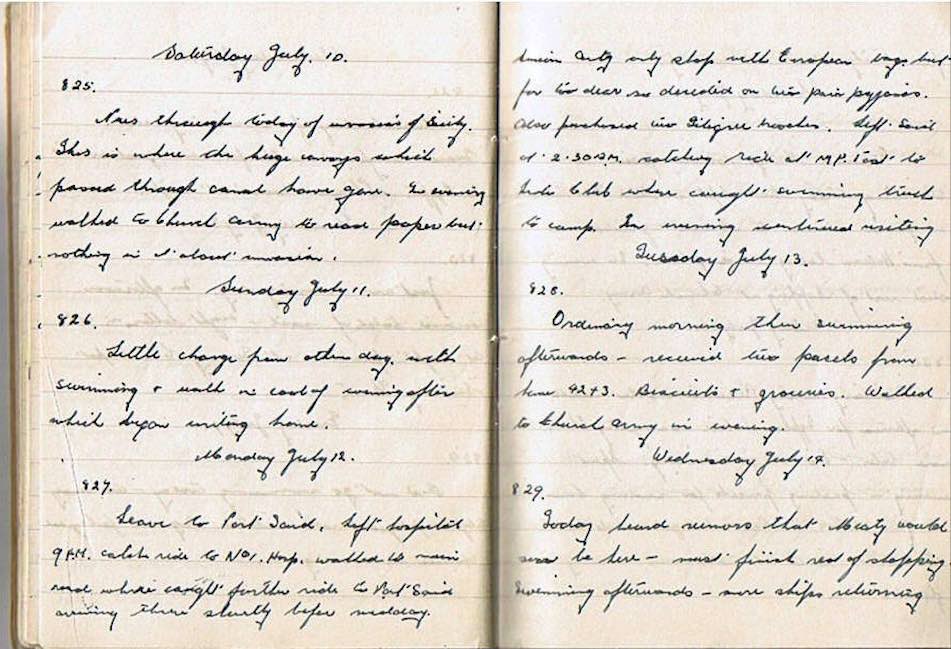 Saturday July. 10.
825.
News through today of invasion of Sicily.
This is where the huge convoys which
passed through canal have gone. In evening
walked to Church Army to read paper but
nothing in it about invasion.
Sunday July 11.
826.
Little change from other day. with
swimming + walk in cool of evening after
which began writing home.
Monday July 12.
827.
Leave to Port Said. Left hospital
9 A.M. catch ride to No1. Hosp. walked to main
road where caught further ride to Port Said
arriving there shortly before midday.
only shops with European but
far too dear so decided on two pair pyjamas.
Also purchased two filigree broaches. Left Said
at 2.30 P.M. catching ride at M.P. Post to
Club where caught swimming truck
to camp. In evening continued writing
Tuesday July 13.
828.
Ordinary morning then swimming
afterwards - received two parcels from
home 42+3. Biscuits + groceries. Walked
to Church Army in evening.
Wednesday July 14.
829.
Today heard rumors that would
soon be here - must finish rest of shopping
Swimming afterwards - more ships returning